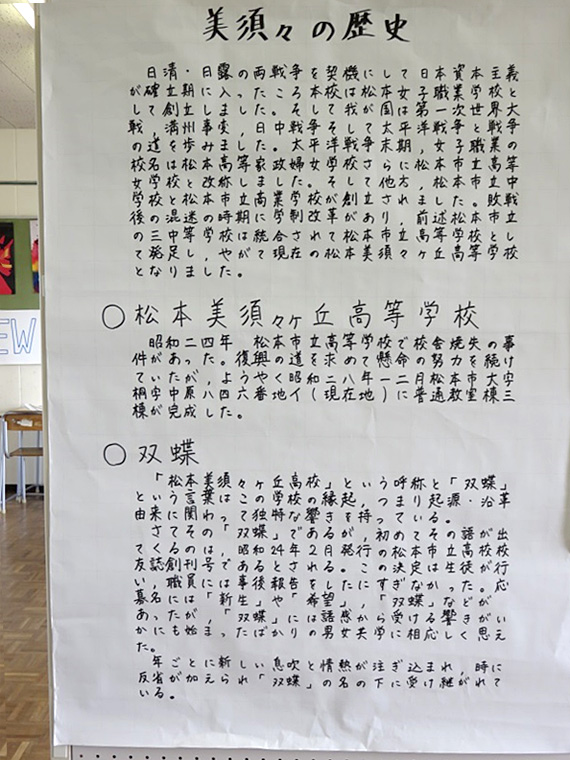 美須々の歴史
日清・日露の両戦争を契機にして日本資本主義
が確立期に入ったころ本校は松本女子職業学校と
して創立しました。そして我が国は第一次世界大
戦，満州事変，日中戦争そして太平洋戦争と戦争
の道を歩みました。太平洋戦争末期，女子職業の
校名は松本高等家政婦女学校さらに松本市立高等
女学校と改称しました。そして他方，松本市立中
学校と松本市立商業学校が創立されました。敗戦
後の混迷の時期に学制改革があり，前述松本市立
の三中等学校は統合されて松本市立高等学校とし
て発足し，やがて現在の松本美須々ヶ丘高等学校
となりました。
○松本美須々ヶ丘高等学校
昭和二四年，松本市立高等学校で校舎焼失の事
件があった。復興の道を求めて懸命の努力を続け
ていたが，ようやく昭和二八年一二月松本市大字
桐字中原八四六番地イ（現在地）に普通教室棟三
棟が完成した。
○双蝶
「松本美須々ヶ丘高校」という呼称と「双蝶」
という言葉はこの学校の縁起，つまり起源・沿革
由来に関わって独特な響きを持っている。
さてその「双蝶」であるが，初めてその語が出
てくるのは，昭和24年2月発行の松本市立高校校
友誌創刊号であるとされる。この決定は生徒が行
い，職員には事後報告をしたにすぎなかった。応
募名には「新生」や「希望」，「双蝶」などが
あったが，「双蝶」には語感から受ける響きがい
かにも始まったばかりの男女共学に相応しく思え
た。
年ごとに新しい息吹と情熱が注ぎ込まれ，時に
反省が加えられ「双蝶」の名の下に受け継がれて
いる。
EW